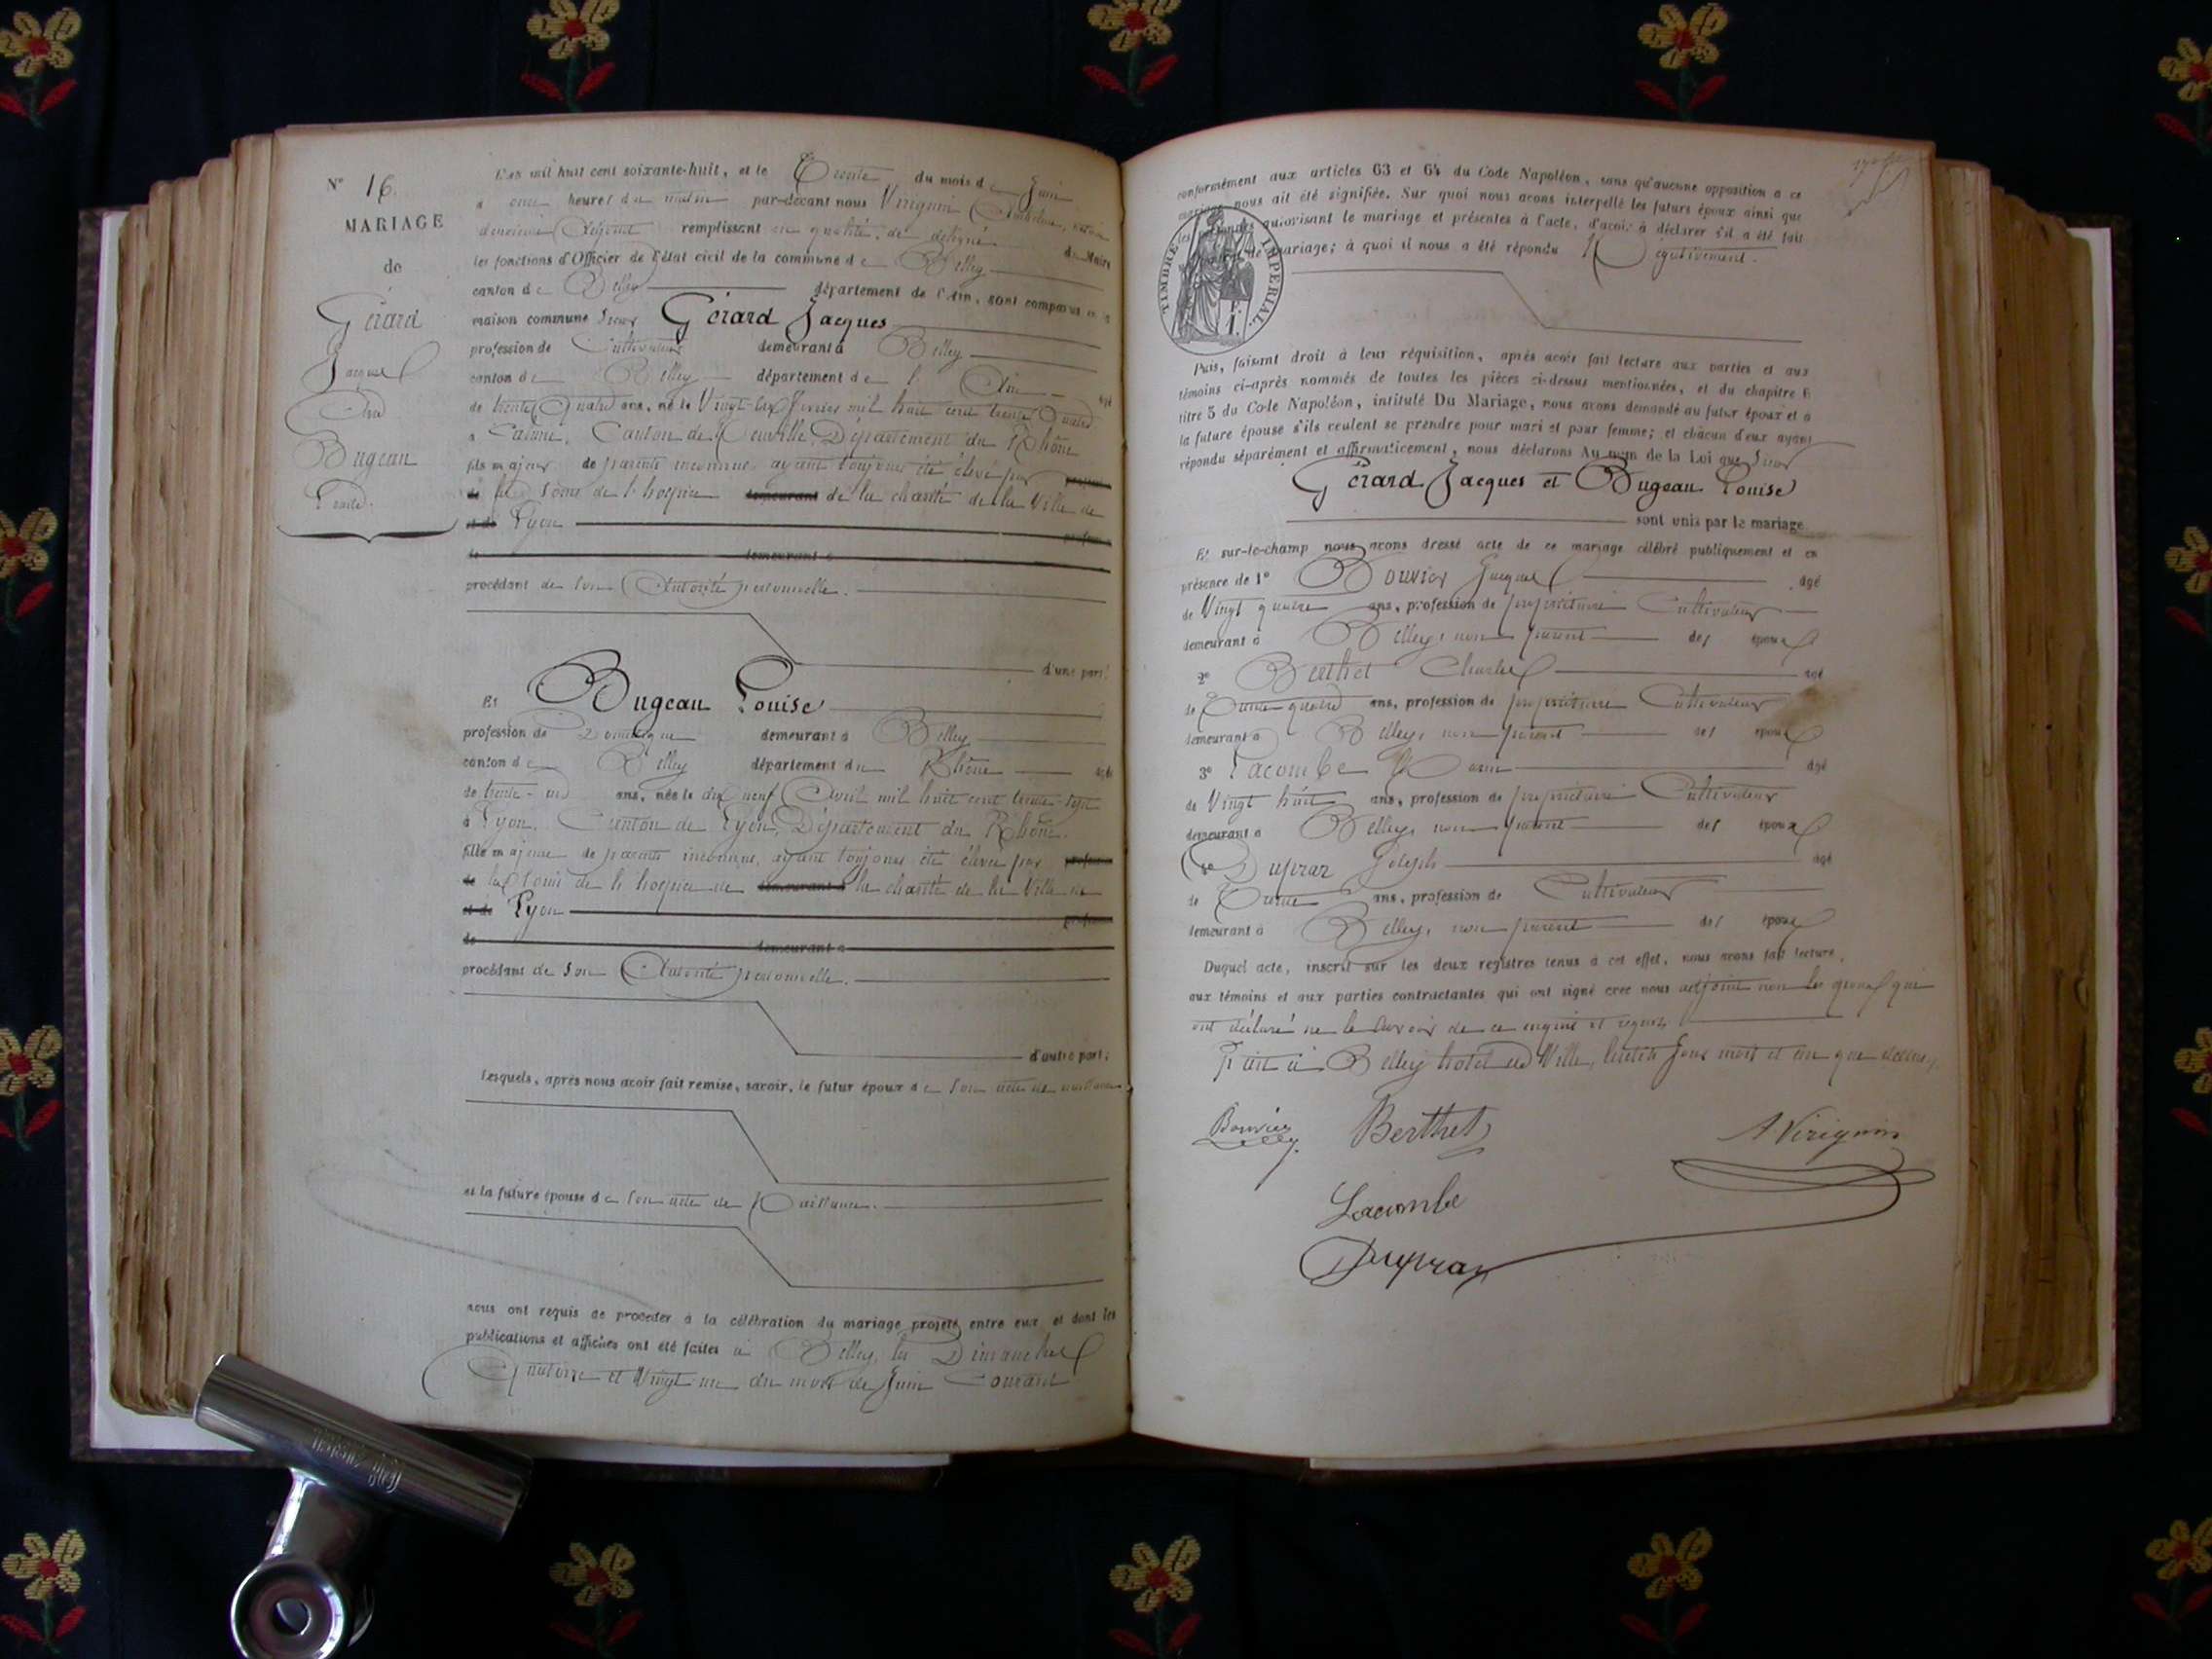 N° 16.
MARIAGE
de
Gérard
Jacques
Avec
Bugeau
Louise.
L'an mil huit cent soixante-huit, et le Trente du mois de Juin
à onze heures du matin par-devant nous Virignin Anthelme,
deuxième Adjoint remplissant en qualité de délégué du Maire
les fonctions d'Officier de l'état civil de la commune de Belley
canton de Belley département de l'Ain, sont comparus en la
maison commune Sieur Gérard Jacques
profession de Cultivateur demeurant à Belley
canton de Belley département de l'Ain âgé
de trente Quatre ans, né le Vingt-six Février mil huit cent trente Quatre
à Caluire, Canton de Neuville, Département du Rhône
fils majeur de parents inconnus ayant toujours été élevé par
les soins de l'hospice demeurant de la charité de la Ville de
et de Lyon
de demeurant à
procédant de son Autorité personnelle.
d'une part;
Et Bugeau Louise
profession de Domestique demeurant à Belley
canton de Belley département du Rhône âgée
de trente-un ans, née le dix neuf Avril mil huit cent trente-sept
à Lyon, Canton de Lyon, Département du Rhône.
fille majeure de parents inconnus, ayant toujours été élevée par profession
de les soins de l'hospice de demeurant à la charité de la Ville de
et de Lyon
de demeurant à
procédant de son Autorité personnelle.
d'autre part;
Lesquels, après nous avoir fait remise, savoir, le futur époux de son acte de naissance
et la future épouse de son acte de Naissance.
nous ont requis de procéder à la célébration du mariage projeté entre eux et dont les
publications et affiches ont été faites à Belley, les Dimanches
Quatorze et Vingt un du mois de Juin Courant
conformément aux articles 63 et 64 du Code Napoléon, sans qu'aucune opposition à ce
mariage nous ait été signifiée. Sur quoi nous avons interpellé les futurs époux ainsi que
les personnes autorisant le mariage et présentes à l'acte, d'avoir à déclarer s'il a été fait
de mariage; à quoi il nous a été répondu Négativement.
TIMBRE IMPERIAL.
Puis, faisant droit à leur réquisition, après avoir fait lecture aux parties et aux
témoins ci-après nommés de toutes les pièces ci-dessus mentionnées, et du chapitre 6
titre 5 du Code Napoléon, intitulé Du Mariage, nous avons demandé au futur époux et à
la future épouse s'ils veulent se prendre pour mari et pour femme; et chacun d'eux ayant
répondu séparément et affirmativement, nous déclarons Au nom de la Loi que Sieur
Gérard Jacques et Bugeau Louise
sont unis par le mariage
Et sur-le-champ nous avons dressé acte de ce mariage célébré publiquement et en
présence de 1° Bouvier Jacques âgé
de Vingt quatre ans, profession de propriétaire Cultivateur
demeurant à Belley, non parent des époux
2° Berthet Charles âgé
de Trente quatre ans, profession de propriétaire Cultivateur
demeurant à Belley, non parent des époux
3° Lacombe âgé
de Vingt huit ans, profession de propriétaire Cultivateur
demeurant à Belley, non parent des époux
4° Dupraz Joseph âgé
de Trente ans, profession de Cultivateur
demeurant à Belley, non parent des époux
Duquel acte, inscrit sur les deux registres tenus à cet effet, nous avons fait lecture
aux témoins et aux parties contractantes qui ont signé avec nous adjoint non les époux qui
ont déclaré ne le savoir de ce enquis et requis.
Fait à Belley hôtel de Ville, lesdits Jour mois et an que dessus.
Bouvier Berthet A Virignin
Lacombe
Dupraz